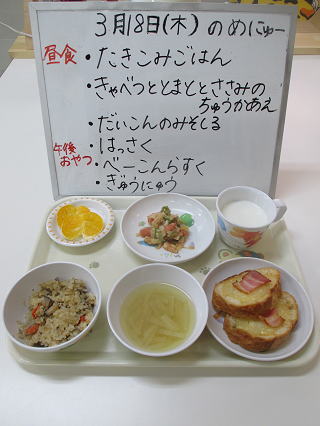 3月18日(木)のめにゅー
昼食・たきこみごはん
・きゃべつととまととささみの
ちゅうかあえ
・だいこんのみそしる
午後おやつ・はっさく
・べーこんらすく
・ぎゅうにゅう